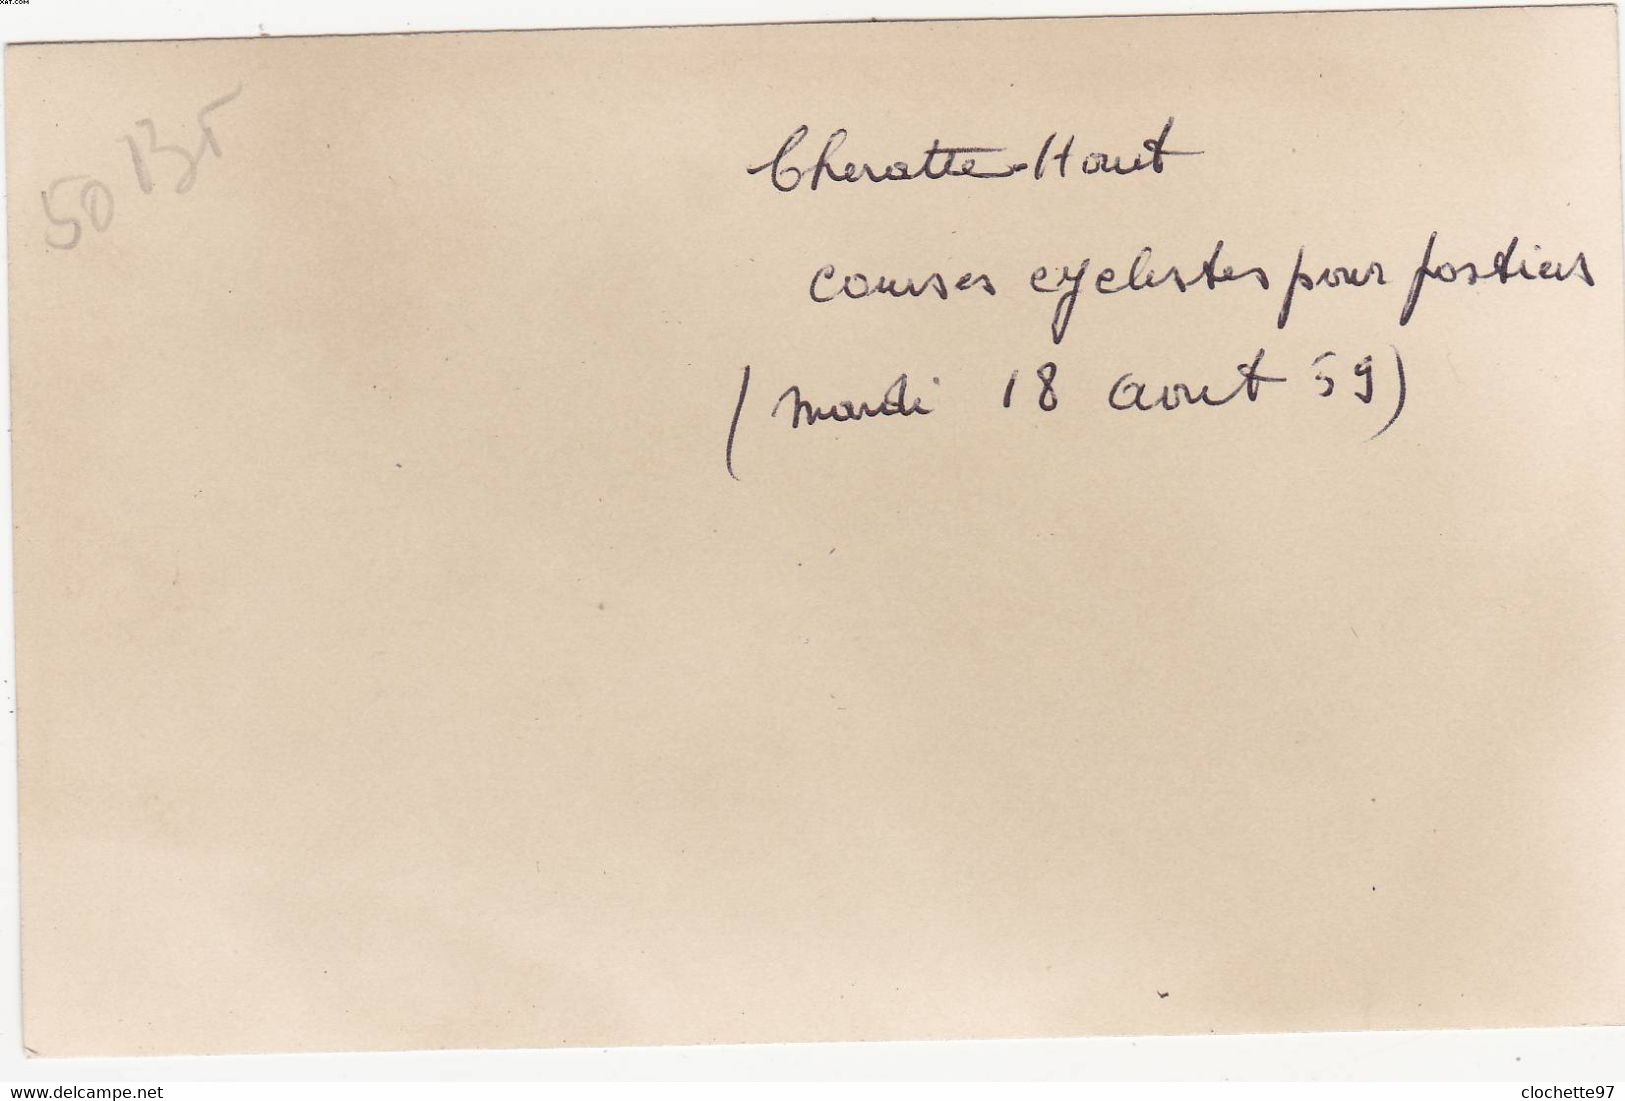 XAT.COM
50 135
Cheratte-Haut
courses cyclistes pour postiers
(mardi 18 aout 59)
www.delcampe.net
clochette97